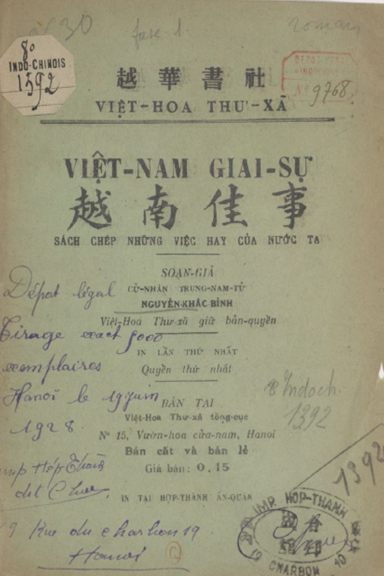 fasc 1.
roman
8°
INDO-CHINOIS
1392
DÉPOT LÉGAL
N° 9768
越華書社
VIỆT-HOA THƯ-XÃ
VIỆT-NAM GIAI-SỰ
越南佳事
SÁCH CHÉP NHỮNG VIỆC HAY CỦA NƯỚC TA
SOẠN-GIẢ
CỬ-NHÂN TRUNG-NAM-TỬ
NGUYỄN-KHẮC BỈNH
Việt-Hoa Thư-xã giữ bản-quyền
IN LẦN THỨ NHẤT
Quyển thứ nhất
BÁN TẠI
Việt-Hoa Thư-xã tổng-cục
N° 15, Vườn-hoa cửa-nam, Hanoi
Bán cất và bán lẻ
Giá bán: 0,15
IN TẠI HỢP-THÀNH ẤN-QUÁN
Dépot légal
Tirage exact
exemplaires
Hanoi le 19 juin
1928
imp Hợp Thành
dit Chue
19 Rue du charbon 19
Hanoi
8° Indoch.
1392
1392
IMP. HOP-THANH
19 CHARBON 19